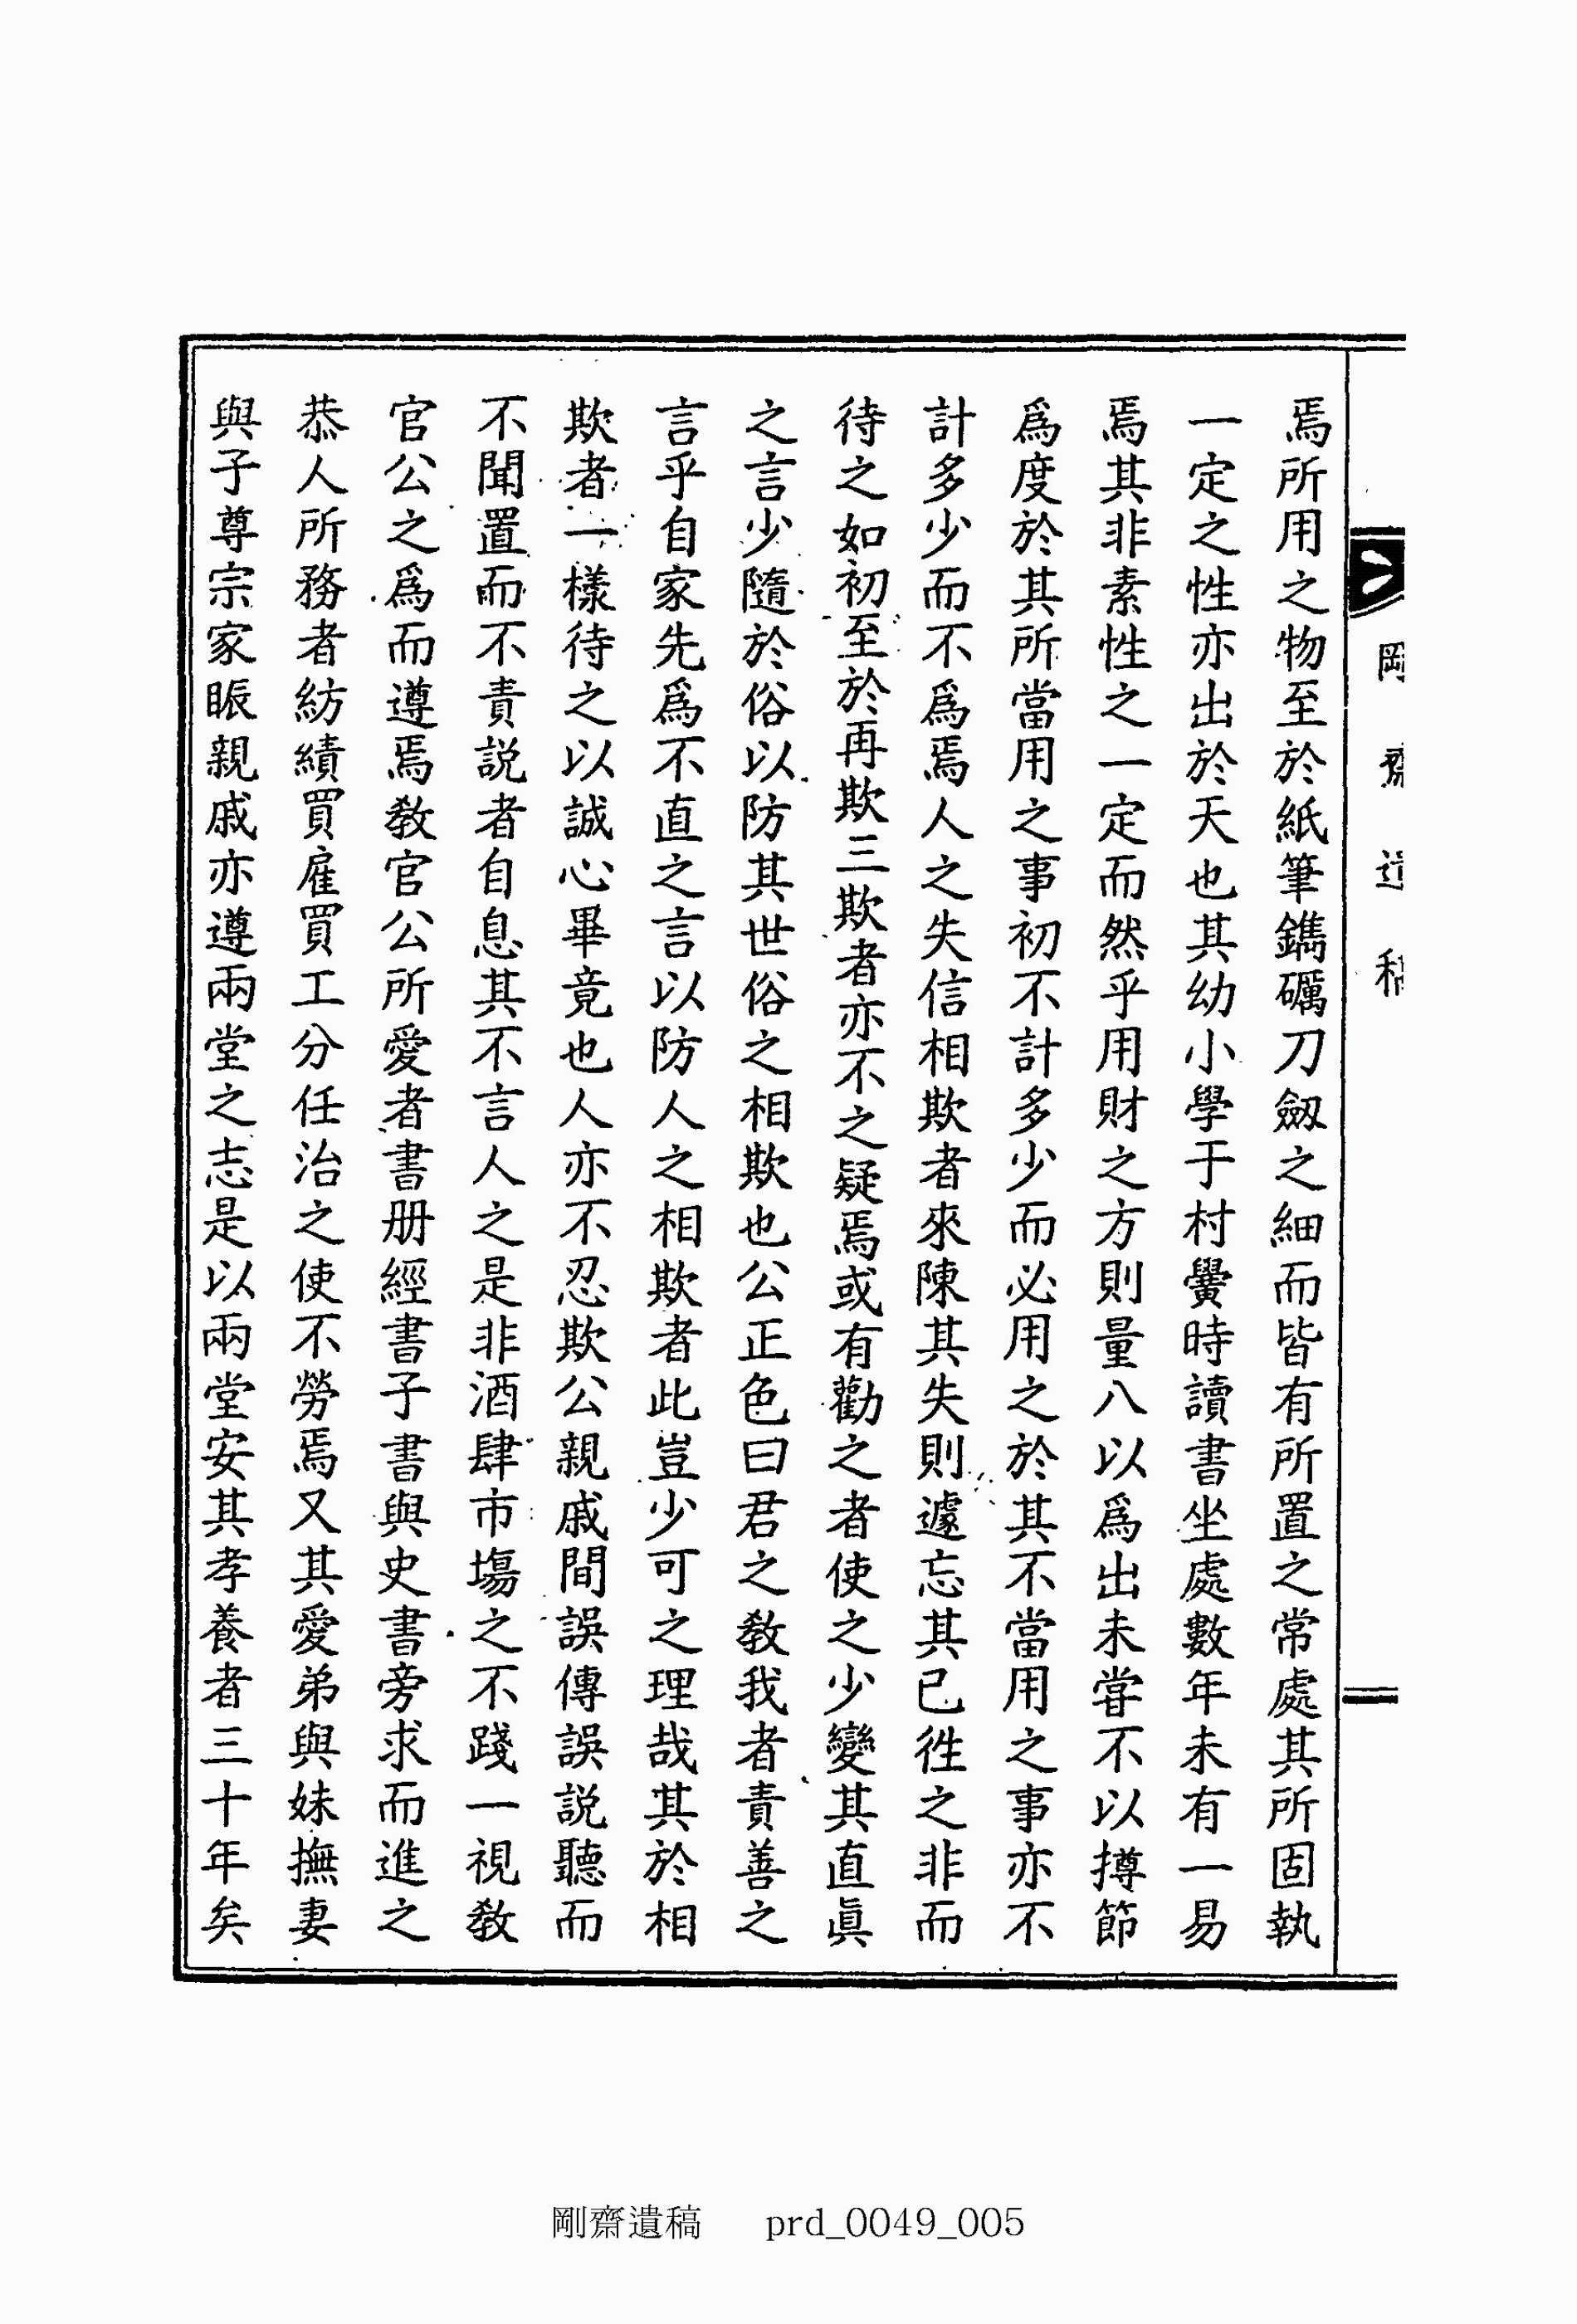 剛齋遺稿
焉所用之物至於紙筆鐫礪刀劔之細而皆有所置之常處其所固執
一定之性亦出於天也其幼小學于村黌時讀書坐處數年未有一易
焉其非素性之一定而然乎用財之方則量入以爲出未甞不以撙節
爲度於其所當用之事初不計多少而必用之於其不當用之事亦不
計多少而不爲焉人之失信相欺者來陳其失則遽忘其已徃之非而
待之如初至於再欺三欺者亦不之疑焉或有勸之者使之少變其直眞
之言少隨於俗以防其世俗之相欺也公正色曰君之敎我者責善之
言乎自家先爲不直之言以防人之相欺者此豈少可之理哉其於相
欺者一樣待之以誠心畢竟也人亦不忍欺公親戚間誤傳誤説聽而
不聞置而不責説者自息其不言人之是非酒肆市塲之不踐一視敎
官公之爲而遵焉敎官公所愛者書册經書子書與史書旁求而進之
恭人所務者紡績買雇買工分任治之使不勞焉又其愛弟與妹撫妻
與子尊宗家賑親戚亦遵兩堂之志是以兩堂安其孝養者三十年矣
剛齋遺稿 prd_0049_005